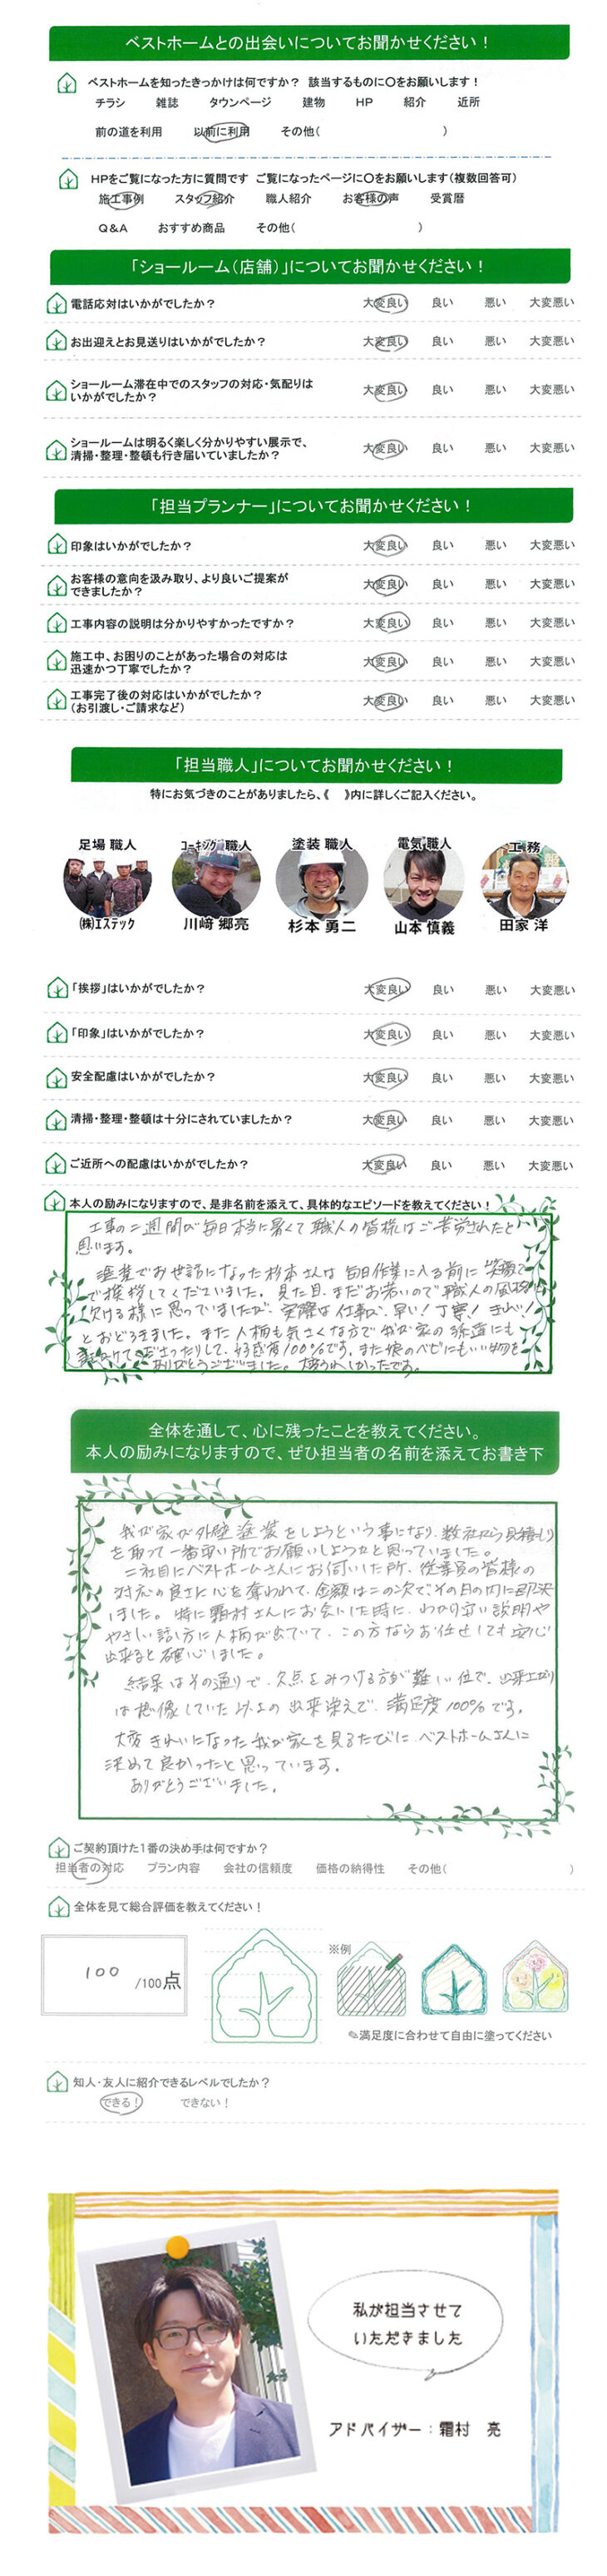 ベストホームとの出会いについてお聞かせください！
ベストホームを知ったきっかけは何ですか？ 該当するものに〇をお願いします！
チラシ 雑誌 タウンページ 建物 HP 紹介 近所
前の道を利用 以前に利用 その他( )
HPをご覧になった方に質問です ご覧になったページに〇をお願いします(複数回答可)
施工事例 スタッフ紹介 職人紹介 お客様の声 受賞暦
Q&A おすすめ商品 その他( )
「ショールーム(店舗)」についてお聞かせください！
電話応対はいかがでしたか？ 大変良い 良い 悪い 大変悪い
お出迎えとお見送りはいかがでしたか？ 大変良い 良い 悪い 大変悪い
ショールーム滞在中でのスタッフの対応・気配りは
いかがでしたか？ 大変良い 良い 悪い 大変悪い
ショールームは明るく楽しく分かりやすい展示で、
清掃・整理・整頓も行き届いていましたか？ 大変良い 良い 悪い 大変悪い
「担当プランナー」についてお聞かせください！
印象はいかがでしたか？ 大変良い 良い 悪い 大変悪い
お客様の意向を汲み取り、より良いご提案が
できましたか？ 大変良い 良い 悪い 大変悪い
工事内容の説明は分かりやすかったですか？ 大変良い 良い 悪い 大変悪い
施工中、お困りのことがあった場合の対応は
迅速かつ丁寧でしたか？ 大変良い 良い 悪い 大変悪い
工事完了後の対応はいかがでしたか？
(お引渡し・ご請求など) 大変良い 良い 悪い 大変悪い
「担当職人」についてお聞かせください！
特にお気づきのことがありましたら、《 》内に詳しくご記入ください。
足場 職人 コーキング 職人 塗装 職人 電気 職人 工務
(株)エステック 川﨑 郷亮 杉本 勇二 山本 慎義 田家 洋
「挨拶」はいかがでしたか？ 大変良い 良い 悪い 大変悪い
「印象」はいかがでしたか？ 大変良い 良い 悪い 大変悪い
安全配慮はいかがでしたか？ 大変良い 良い 悪い 大変悪い
清掃・整理・整頓は十分にされていましたか？ 大変良い 良い 悪い 大変悪い
ご近所への配慮はいかがでしたか？ 大変良い 良い 悪い 大変悪い
本人の励みになりますので、是非名前を添えて、具体的なエピソードを教えてください！
工事の二週間が毎日本当に暑くて職人の皆様はご苦労されたと
思います。
塗装でお世話になった杉本さんは毎日作業に入る前に笑顔
で挨拶してくださいました。見た目、まだお若いので職人の風格に
欠ける様に思っていましたが、実際は仕事が、早い！丁寧！きれい！
とおどろきました。また人柄も気さくな方で我が家の
くださったりして、好感度100%です。また娘のベビーにもいい物を
ありがとうございました。嬉しかったです。
全体を通して、心に残ったことを教えてください。
本人の励みになりますので、ぜひ担当者の名前を添えてお書き下
我が家が外壁塗装をしようという事になり、数社から見積り
を取って一番安い所でお願いしようかと思っていました。
二社目にベストホームさんにお伺いした所、従業員の皆様の
対応の良さに心を奪われて、金額は二の次でその日の内に即決
しました。特に霜村さんにお会いした時に、わかり安い説明や
やさしい話し方に人柄が出ていて、この方ならお任せしても安心
出来ると確心しました。
結果はその通りで、欠点をみつける方が難しい位で、出来上がり
は想像していた以上の出来栄えで、満足度100%です。
大変きれいになった我が家を見るたびに、ベストホームさんに
決めて良かったと思っています。
ありがとうございました。
ご契約頂けた1番の決め手は何ですか？
担当者の対応 プラン内容 会社の信頼度 価格の納得性 その他( )
全体を見て総合評価を教えてください！
100 /100点
※例
✎満足度に合わせて自由に塗ってください
知人・友人に紹介できるレベルでしたか？
できる！ できない！
私が担当させて
いただきました
アドバイザー：霜村 亮